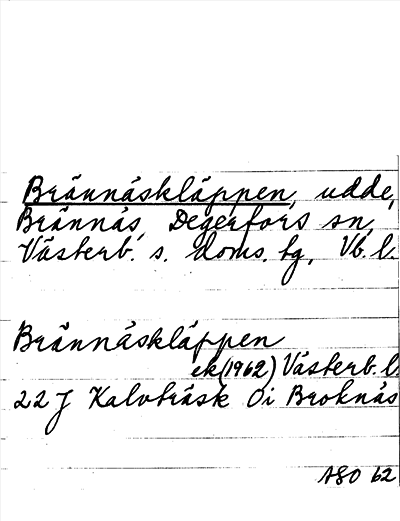 Brännåskläppen, udde,
Brännås, Degerfors sn,
Västerb. s. doms. tg, Vb. l.
Brännåskläppen
ek (1962) Västerb. l
22 J Kalvträsk Oi Broknäs
ASO 62